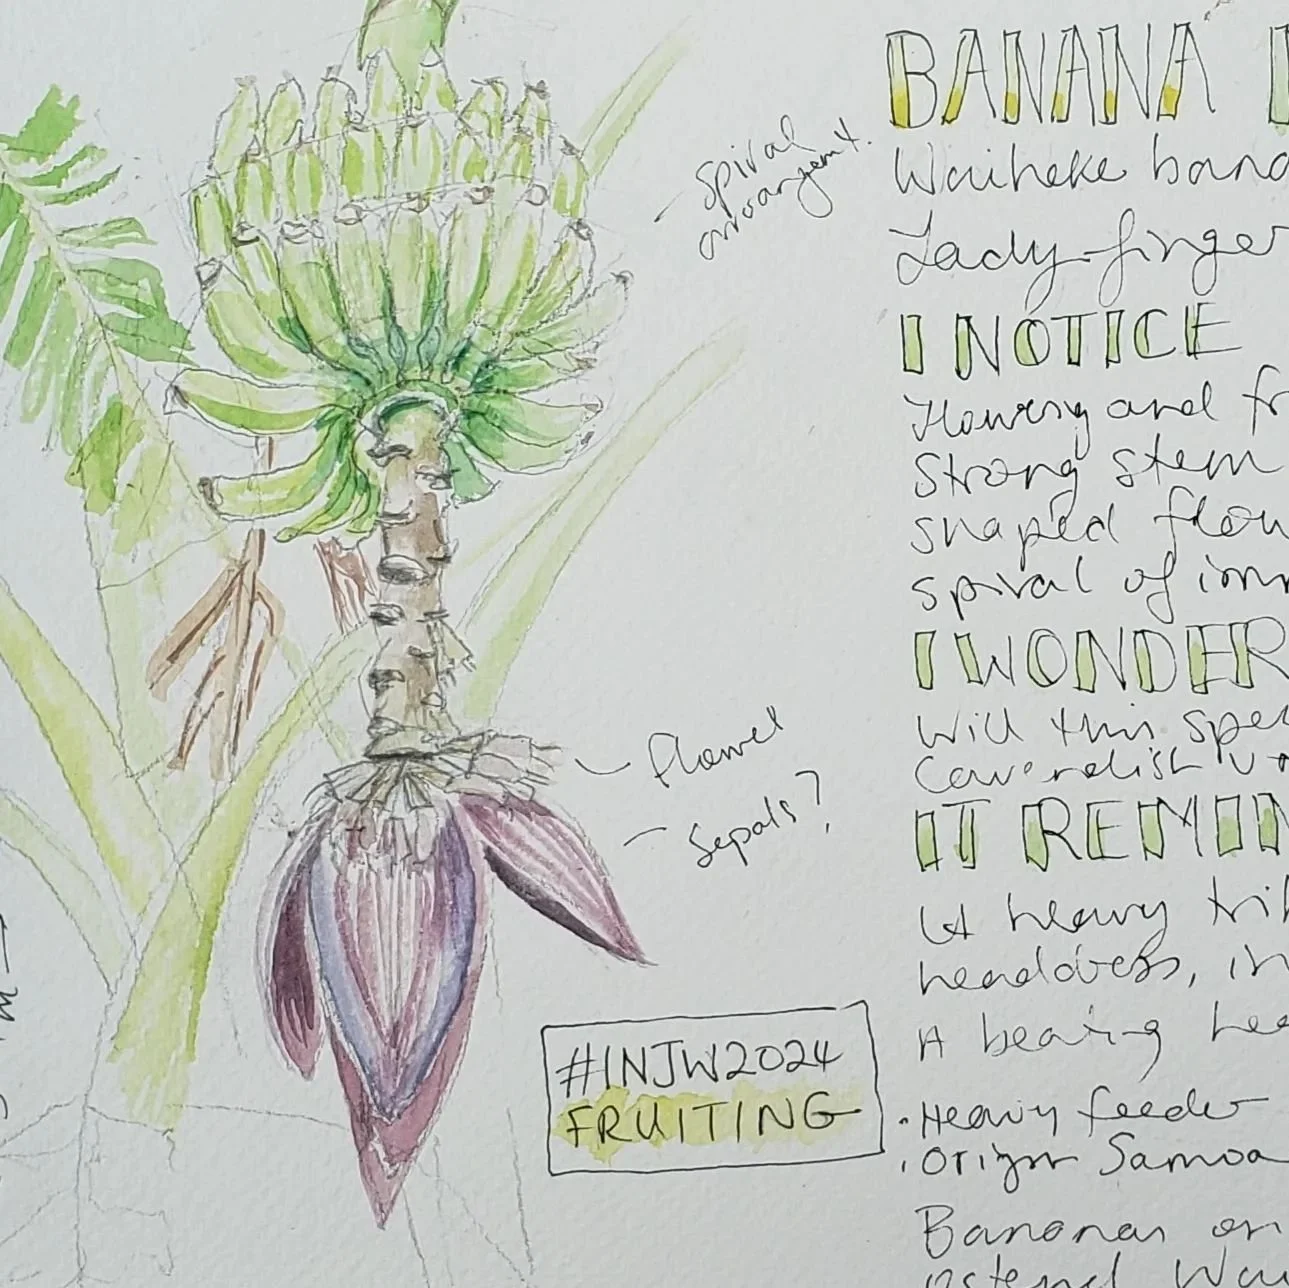 BANANA
Waiheke bana
Lady finger
I NOTICE
Flowering and fr
Strong stem
shaped flow
spiral of imm
I WONDER
Will this spe
Cavendish v
IT REMIN
A heavy tri
headdress, in
A bearing hea
• Heavy feeder
• Origin Samoa
Bananas on
ostend Wai
- Spiral
arrangemt.
- flower
- Sepals?
#INJW2024
FRUITING